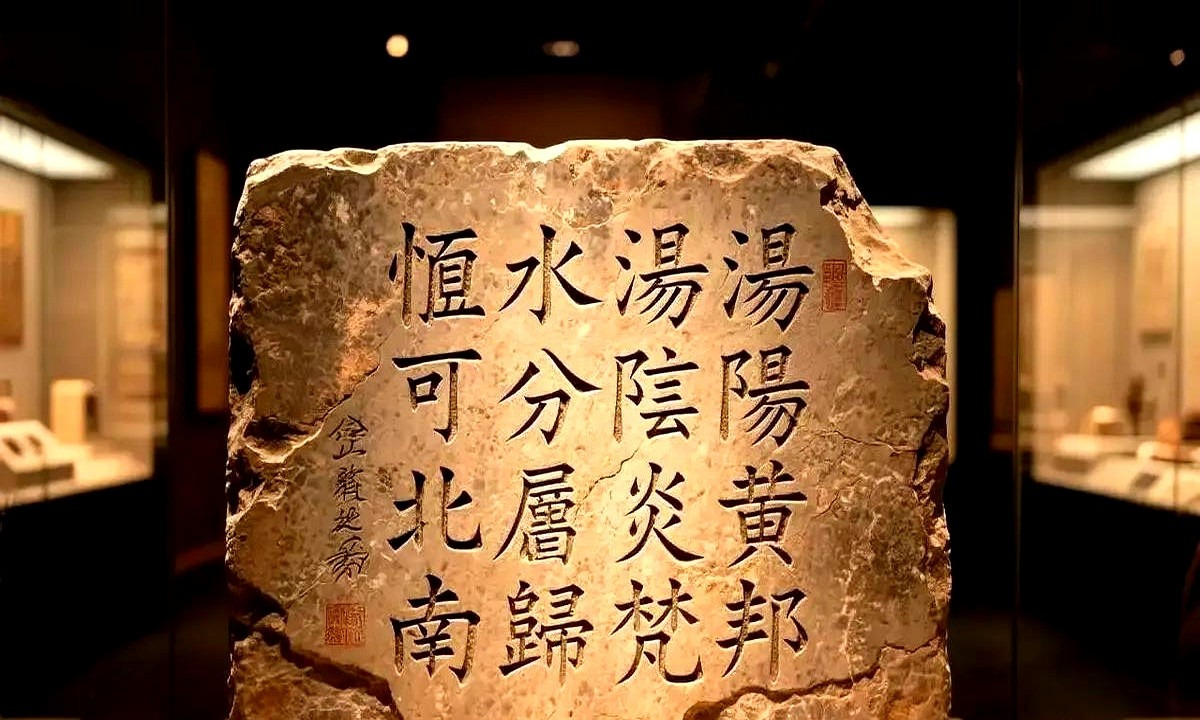 湯陽黄邦
湯陰炎梵
水分層歸
恒可北南